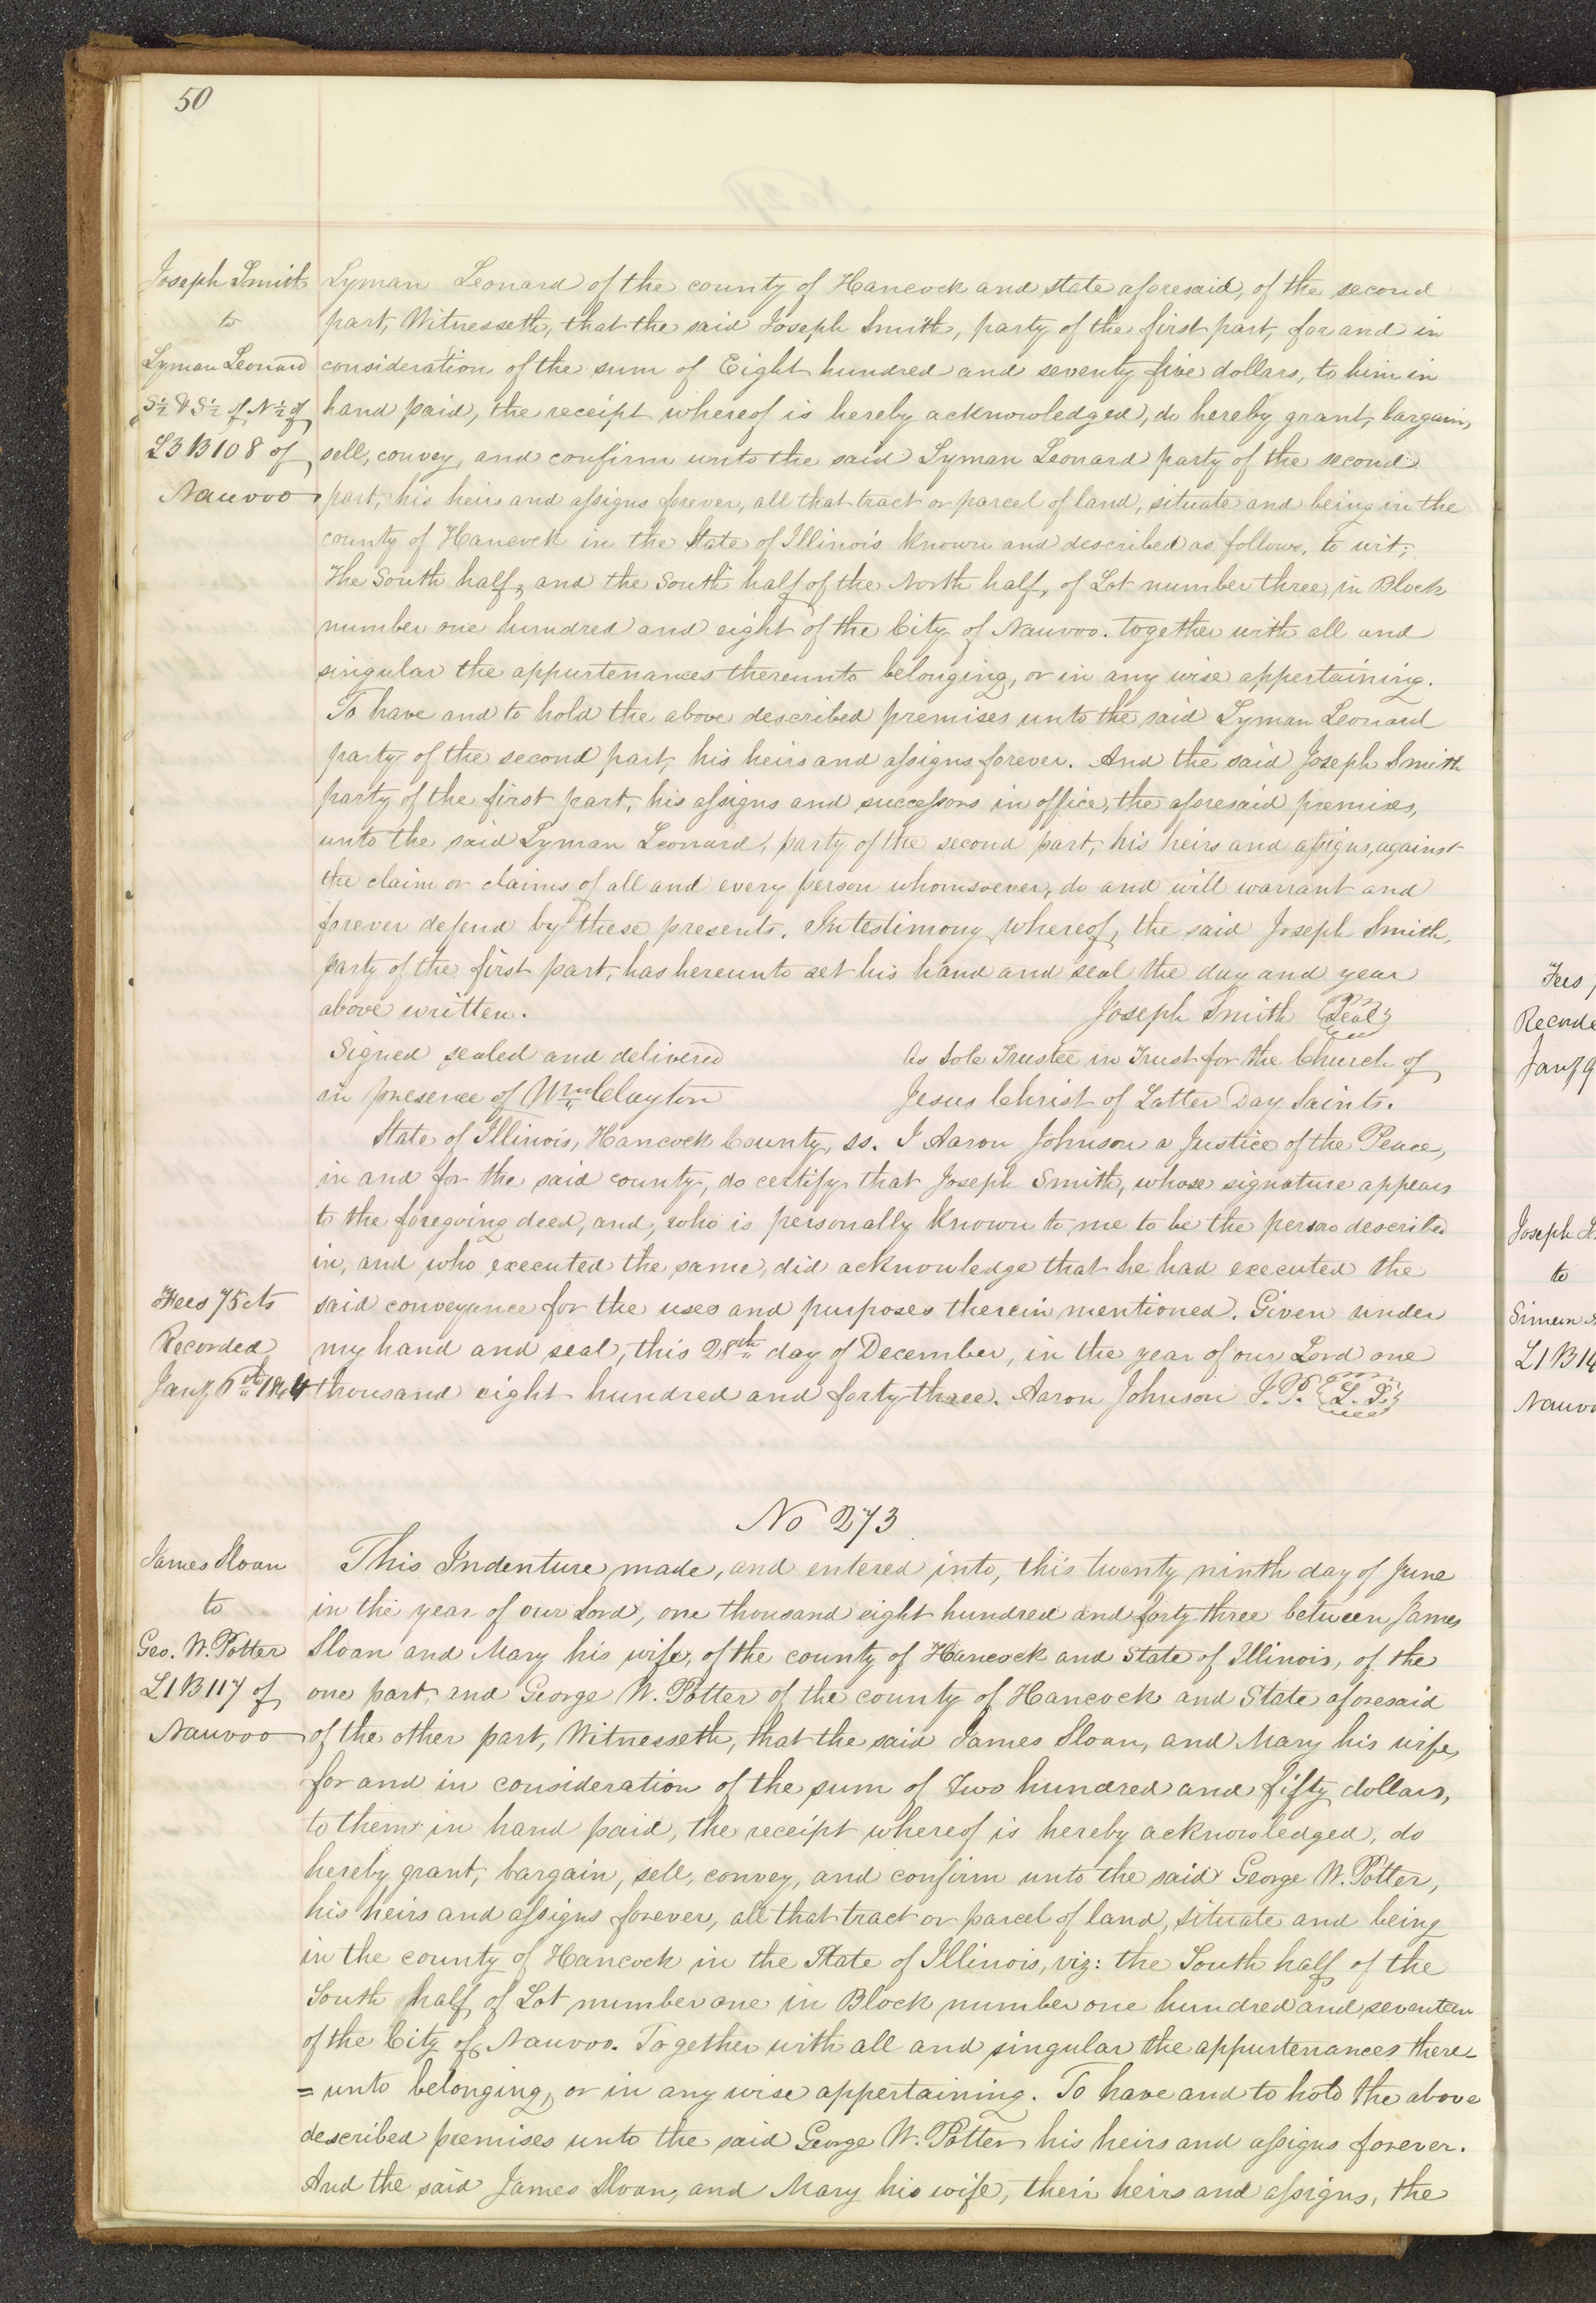 50
Joseph Smith
to
Lyman Leonard
S ½ & S ½ of N ½ of
L3 B108 of
Nauvoo
Lyman Leonard of the county of Hancock and state aforesaid, of the second
part, Witnesseth, that the said Joseph Smith, party of the first part, for and in
consideration of the sum of Eight hundred and seventy five dollars, to him in
hand paid, the receipt whereof is hereby acknowledged, do hereby grant, bargain,
sell, convey, and confirm unto the said Lyman Leonard party of the second
part, his heirs and assigns forever, all that tract or parcel of land, situate and being in the
county of Hancock in the State of Illinois known and described as follows, to wit;
The South half, and the South half of the North half, of Lot number three, in Block
number one hundred and eight of the City of Nauvoo. together with all and
singular the appurtenances thereunto belonging, or in any wise appertaining.
To have and to hold the above described premises unto the said Lyman Leonard
party of the second part, his heirs and assigns forever. And the said Joseph Smith
party of the first part, his assigns and successors in office, the aforesaid premises,
unto the said Lyman Leonard, party of the second part, his heirs and assigns, against
the claim or claims of all and every person whomsoever, do and will warrant and
forever defend by these presents. In testimony whereof, the said Joseph Smith,
party of the first part, has hereunto set his hand and seal the day and year
above written. Joseph Smith Seal
Signed sealed and delivered As Sole Trustee in Trust for the Church of
in presence of Wm Clayton Jesus Christ of Latter Day Saints.
State of Illinois, Hancock County, ss. I Aaron Johnson a Justice of the Peace,
in and for the said county, do certify that Joseph Smith, whose signature appears
to the foregoing deed, and, who is personally known to me to be the person described
in, and who executed the same, did acknowledge that he had executed the
said conveyance for the uses and purposes therein mentioned. Given under
my hand and seal, this 28th day of December, in the year of our Lord one
thousand eight hundred and forty three. Aaron Johnson J. P. L. S.
Fees 75 cts
Recorded
Jany 6th 1844
No 273
James Sloan
to
Geo. W. Potter
L1 B117 of
Nauvoo
This Indenture made, and entered into, this twenty ninth day of June
in the year of our Lord, one thousand eight hundred and forty three between James
Sloan and Mary his wife, of the county of Hancock and State of Illinois, of the
one part, and George W. Potter of the county of Hancock and State aforesaid
of the other part, Witnesseth, that the said James Sloan, and Mary his wife,
for and in consideration of the sum of Two hundred and fifty dollars,
to them in hand paid, the receipt whereof is hereby acknowledged, do
hereby grant, bargain, sell, convey, and confirm unto the said George W. Potter,
his heirs and assigns forever, all that tract or parcel of land, situate and being
in the county of Hancock in the State of Illinois, viz: the South half of the
South half of Lot number one in Block number one hundred and seventeen
of the City of Nauvoo. Together with all and singular the appurtenances there-
=unto belonging, or in any wise appertaining. To have and to hold the above
described premises unto the said George W. Potter his heirs and assigns forever.
And the said James Sloan, and Mary his wife, their heirs and assigns, the
Fees
Recorde
Jany 9
Joseph
to
Simeon
L1 B14
Nauvoo